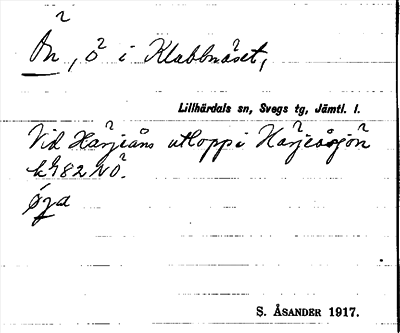 Ön, ö i Klabbnäset,
Lillhärdals sn, Svegs tg, Jämtl. l.
Vid Härjeåns utlopp i Härjeåsjön
k 982 NÖ.
öya
S. ÅSANDER 1917.